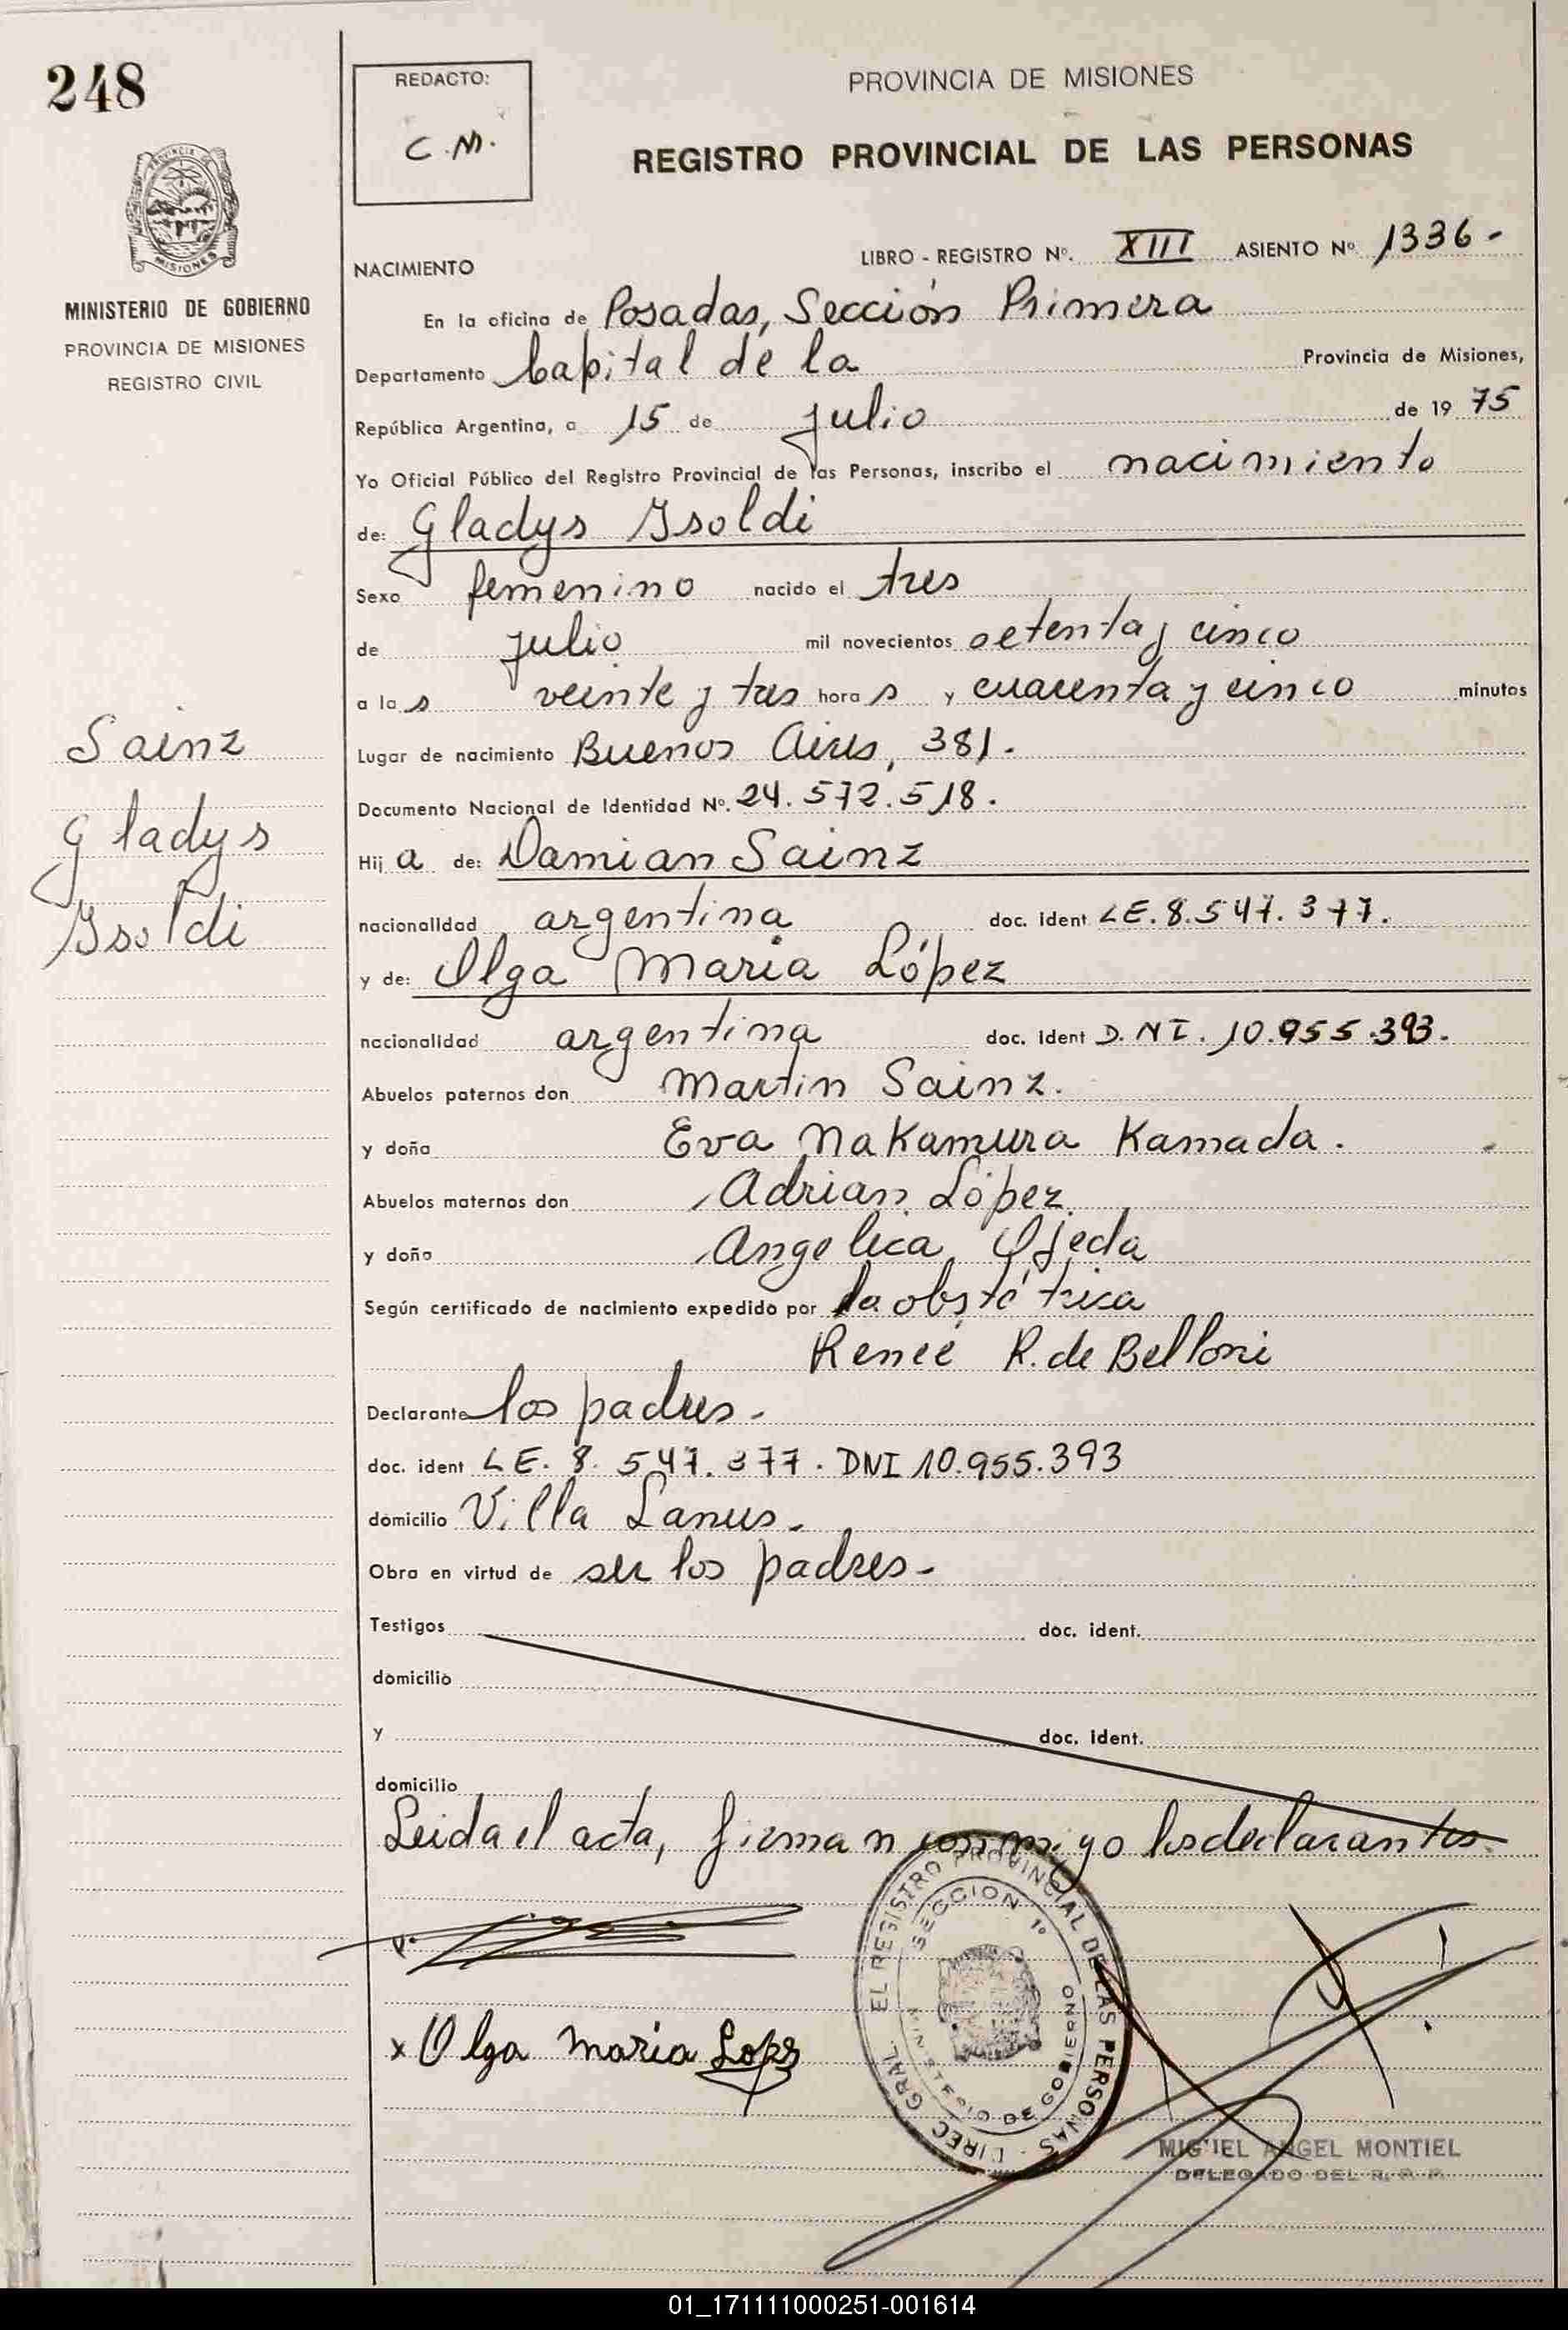 248
REDACTO:
C.M.
PROVINCIA DE MISIONES
REGISTRO PROVINCIAL DE LAS PERSONAS
PROVINCIA DE
MISIONES
MINISTERIO DE GOBIERNO
PROVINCIA DE MISIONES
REGISTRO CIVIL
NACIMIENTO
LIBRO - REGISTRO Nº. XIII ASIENTO Nº 1336-
En la oficina de Posadas, Sección Primera
Departamento Capital de la Provincia de Misiones,
República Argentina, a 15 de Julio de 19 75
Yo Oficial Público del Registro Provincial de las Personas, inscribo el nacimiento
de: Gladys Isoldi
Sexo femenino nacido el tres
de julio mil novecientos setenta y cinco
a la s veinte y tres hora s y cuarenta y cinco minutos
Lugar de nacimiento Buenos Aires, 381.
Documento Nacional de Identidad Nº. 24.572.518.
Hij a de: Damian Sainz
nacionalidad argentina doc. ident LE. 8.547.377.
y de: Olga Maria López
nacionalidad argentina doc. ident D.NI. 10.955.393.
Abuelos paternos don Martin Sainz.
y doña Eva Nakamura Kamada.
Abuelos maternos don Adrian López
y doña Angelica Ojeda
Según certificado de nacimiento expedido por la obstétrica
Reneé R. de Belloni
Declarante los padres-
doc. ident LE. 8.547.377. DNI 10.955.393
domicilio Villa Lanus-
Obra en virtud de ser los padres-
Testigos doc. ident.
domicilio
y doc. ident.
domicilio
Leida el acta, firman conmigo los declarantes
Sainz
Gladys
Isoldi
x Olga Maria Lopz
DIREC. GRAL. EL REGISTRO PROVINCIAL DE LAS PERSONAS
SECCION 1º
MINISTERIO DE GOBIERNO
MIGUEL ANGEL MONTIEL
DELEGADO DEL R. P. P.
01_171111000251-001614